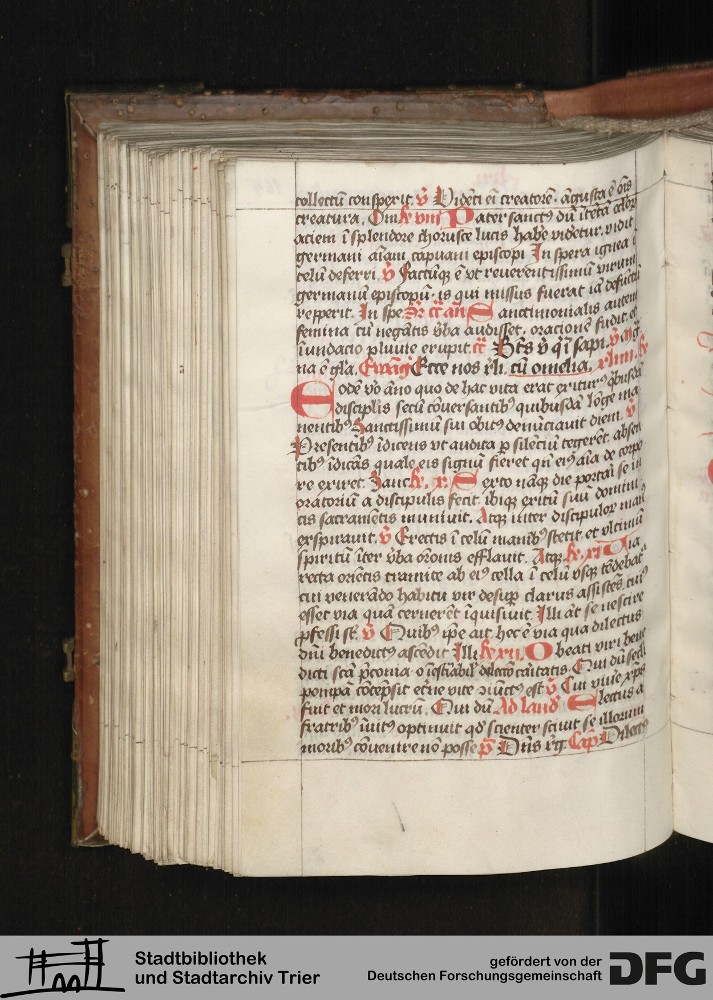 collectū conspexit. v̄ Vidēti eī creatorē. āgusta ē oīs
creatura. Om̄ꝭ viij Pater sanctꝰ dū ītēta celoꝝ
aciem ī splendore choruste lucis habe videtur. vidit
germani aīam capuani episcopi In spera ignea ī
celū deferri. v̄ Factūqꝫ ē vt reuerentissimū virum
germanū episcopū. is qui missus fuerat iā defūctū
repperit. In spe. Sanctimonialis autem
femina cū negātis v̄ba audisset. oracionē fudit. et
īnundacio pluuie erupit. Btūs v̄ qī sapi. v̄
na ē glā. Ewāg Ecce nos rlī. cū omelia.
Eodē vo āno quo de hac vita erat exiturꝰ qͥbusdā
disciplīs secū cōuersantibꝰ quibusdā lōge ma
nentibꝰ Sanctissimū sui obitꝰ denūciauit diem. v̄
Presentibꝰ īdicens vt audita ꝑ silēciū tegerēt. absen
tibꝰ īdicās quale eis signū fieret qn̄ eiꝰ aīa de corpo
re exiret. Sanc. x. Sexto nāqꝫ die portari se in
oratoriū a discipulis fecit. ibiqꝫ exitū suū domini
cis sacramētis muniuit. Atqꝫ inter discipuloꝝ manꝰ
expirauit. v̄ Erectis ī celū manibꝰ stetit. et vltimū
spiritū īter v̄ba orōnis efflauit. Atqꝫ. xi Via
recta orientis tramite ab eiꝰ cella ī celū vsqꝫ tēdebat
cui venerādo habitu vir desuꝑ clarus assistēs. cuiꝰ
esset via quā cernerēt īquisiuit. Illi aūt se nescire
ꝓfessi sūt. v̄ Quibus ipē ait. hec ē via qua dilectus
dn̄i benedictꝰ ascēdit Illi xij. O beati viri bene
dicti scā p̄conia. o īestīabil dilectō caritatis. Qui dū secli
pompā cōtēpsit eterne vite iūctꝰ est v̄ Cui viue xp̄s
fuit et mori lucrū. Qui dū Ad laud Electus a
fratribꝰ īuitꝰ optinuit qd̄ scienter sciuit se illorum
moribꝰ cōuenire nō posse p̄s Dn̄s rg Cap̄ Dilectꝰ
Stadtbibliothek
und Stadtarchiv Trier
gefördert von der
Deutschen Forschungsgemeinschaft
DFG